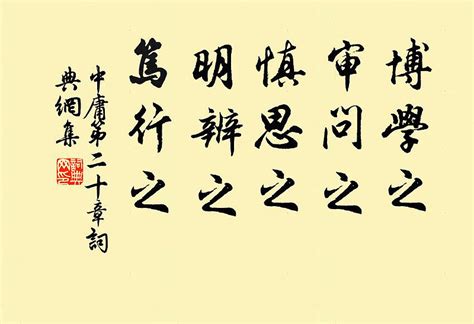 博學之
审問之
慎思之
明辨之
篤行之
中庸第二十章詞
典網集